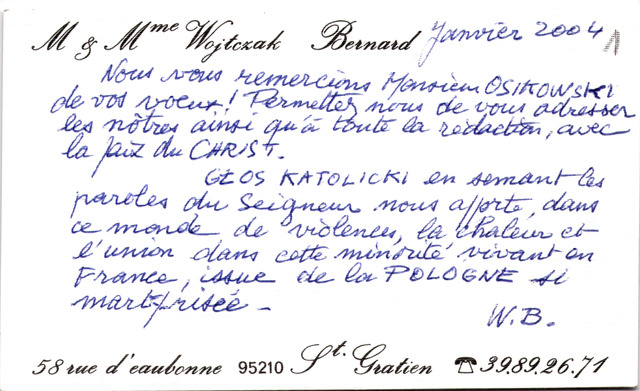 M & Mme Wojtczak Bernard Janvier 2004 1
Nous vous remercions Monsieur OSIKOWSKI
de vos voeux! Permettez nous de vous adresser
les nôtres ainsi qu'à toute la rédaction, avec
la paix du CHRIST.
GŁOS KATOLICKI en semant les
paroles du Seigneur nous apporte, dans
ce monde de violences, la chaleur et
l'union dans cette minorité vivant en
France, issue de la POLOGNE si
martyrisée -
W.B.
58 rue d'eaubonne 95210 St. Gratien ☎ 39.89.26.71